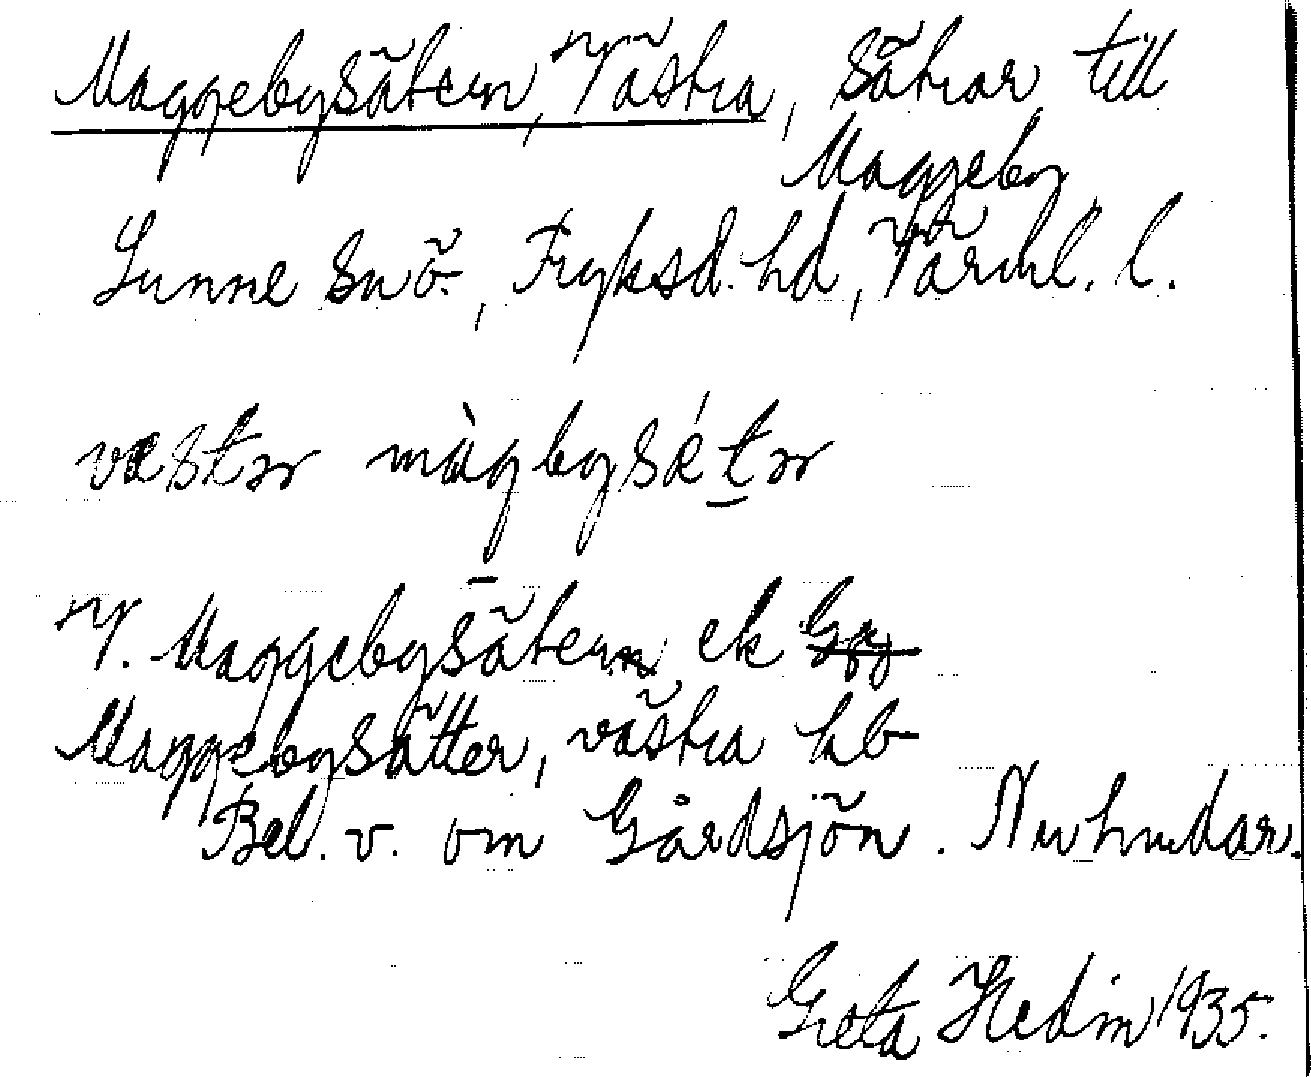 Maggebysätern, Västra, Sätrar till
Maggeby
Sunne snö., Fryksd. hd, Värml. l.
væstər màgbysétər
V. Maggebysätern ek
Maggebysätter, västra hb
Bel. v. om Gårdsjön. Nu hmdar.
Greta Hedin 1935.